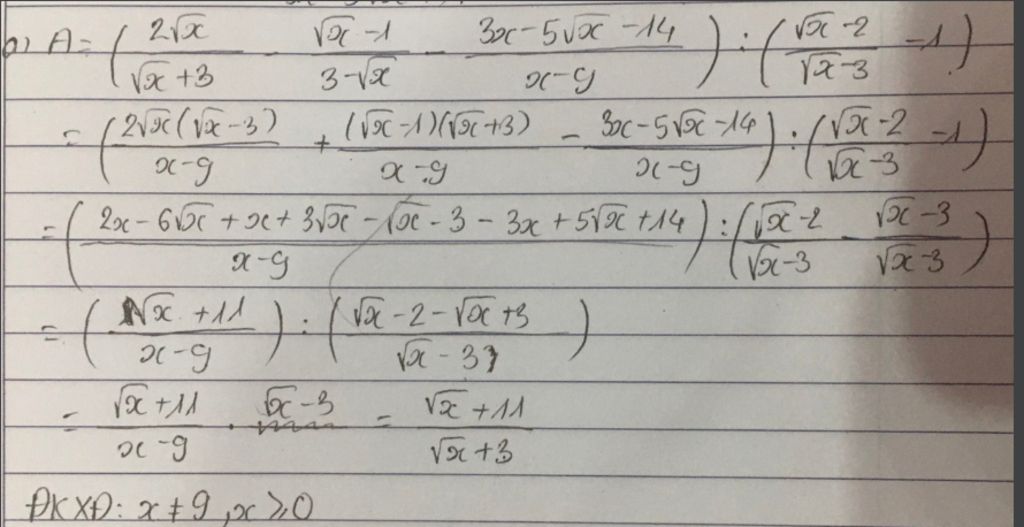 a) A = ( 2√x / (√x + 3) - (√x - 1) / (3 - √x) - (3x - 5√x - 14) / (x - 9) ) : ( (√x - 2) / (√x - 3) - 1 )
= ( 2√x(√x - 3) / (x - 9) + (√x - 1)(√x + 3) / (x - 9) - (3x - 5√x - 14) / (x - 9) ) : ( (√x - 2) / (√x - 3) - 1 )
= ( (2x - 6√x + x + 3√x - √x - 3 - 3x + 5√x + 14) / (x - 9) ) : ( (√x - 2) / (√x - 3) - (√x - 3) / (√x - 3) )
= ( (√x + 11) / (x - 9) ) : ( (√x - 2 - √x + 3) / (√x - 3) )
= (√x + 11) / (x - 9) . √x - 3 = (√x + 11) / (√x + 3)
ĐKXĐ: x ≠ 9, x ≥ 0